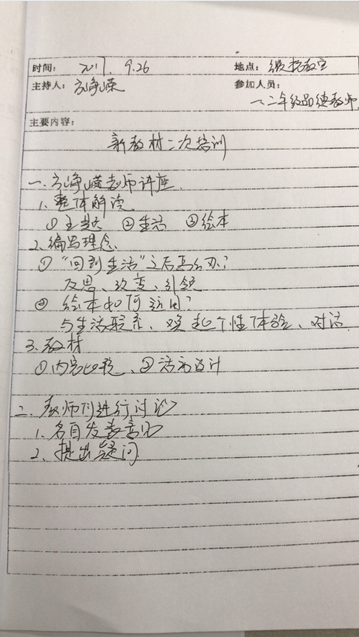 时间: 2017. 9.26 地点: 教室
主持人: 方峥嵘 参加人员:
一、二年级品德教师
主要内容:
新教材二次培训
一. 方峥嵘老师讲座
1. 整体解读
① ②生活 ③绘本
2. 编写理念
① "回到生活"之后怎么办?
反思、改变、引领
② 绘本如何运用?
与生活联系、唤起个性体验、对话
3. 教材
①内容比较、②活动设计
二. 教师们进行讨论
1. 各自发表意见
2. 提出疑问